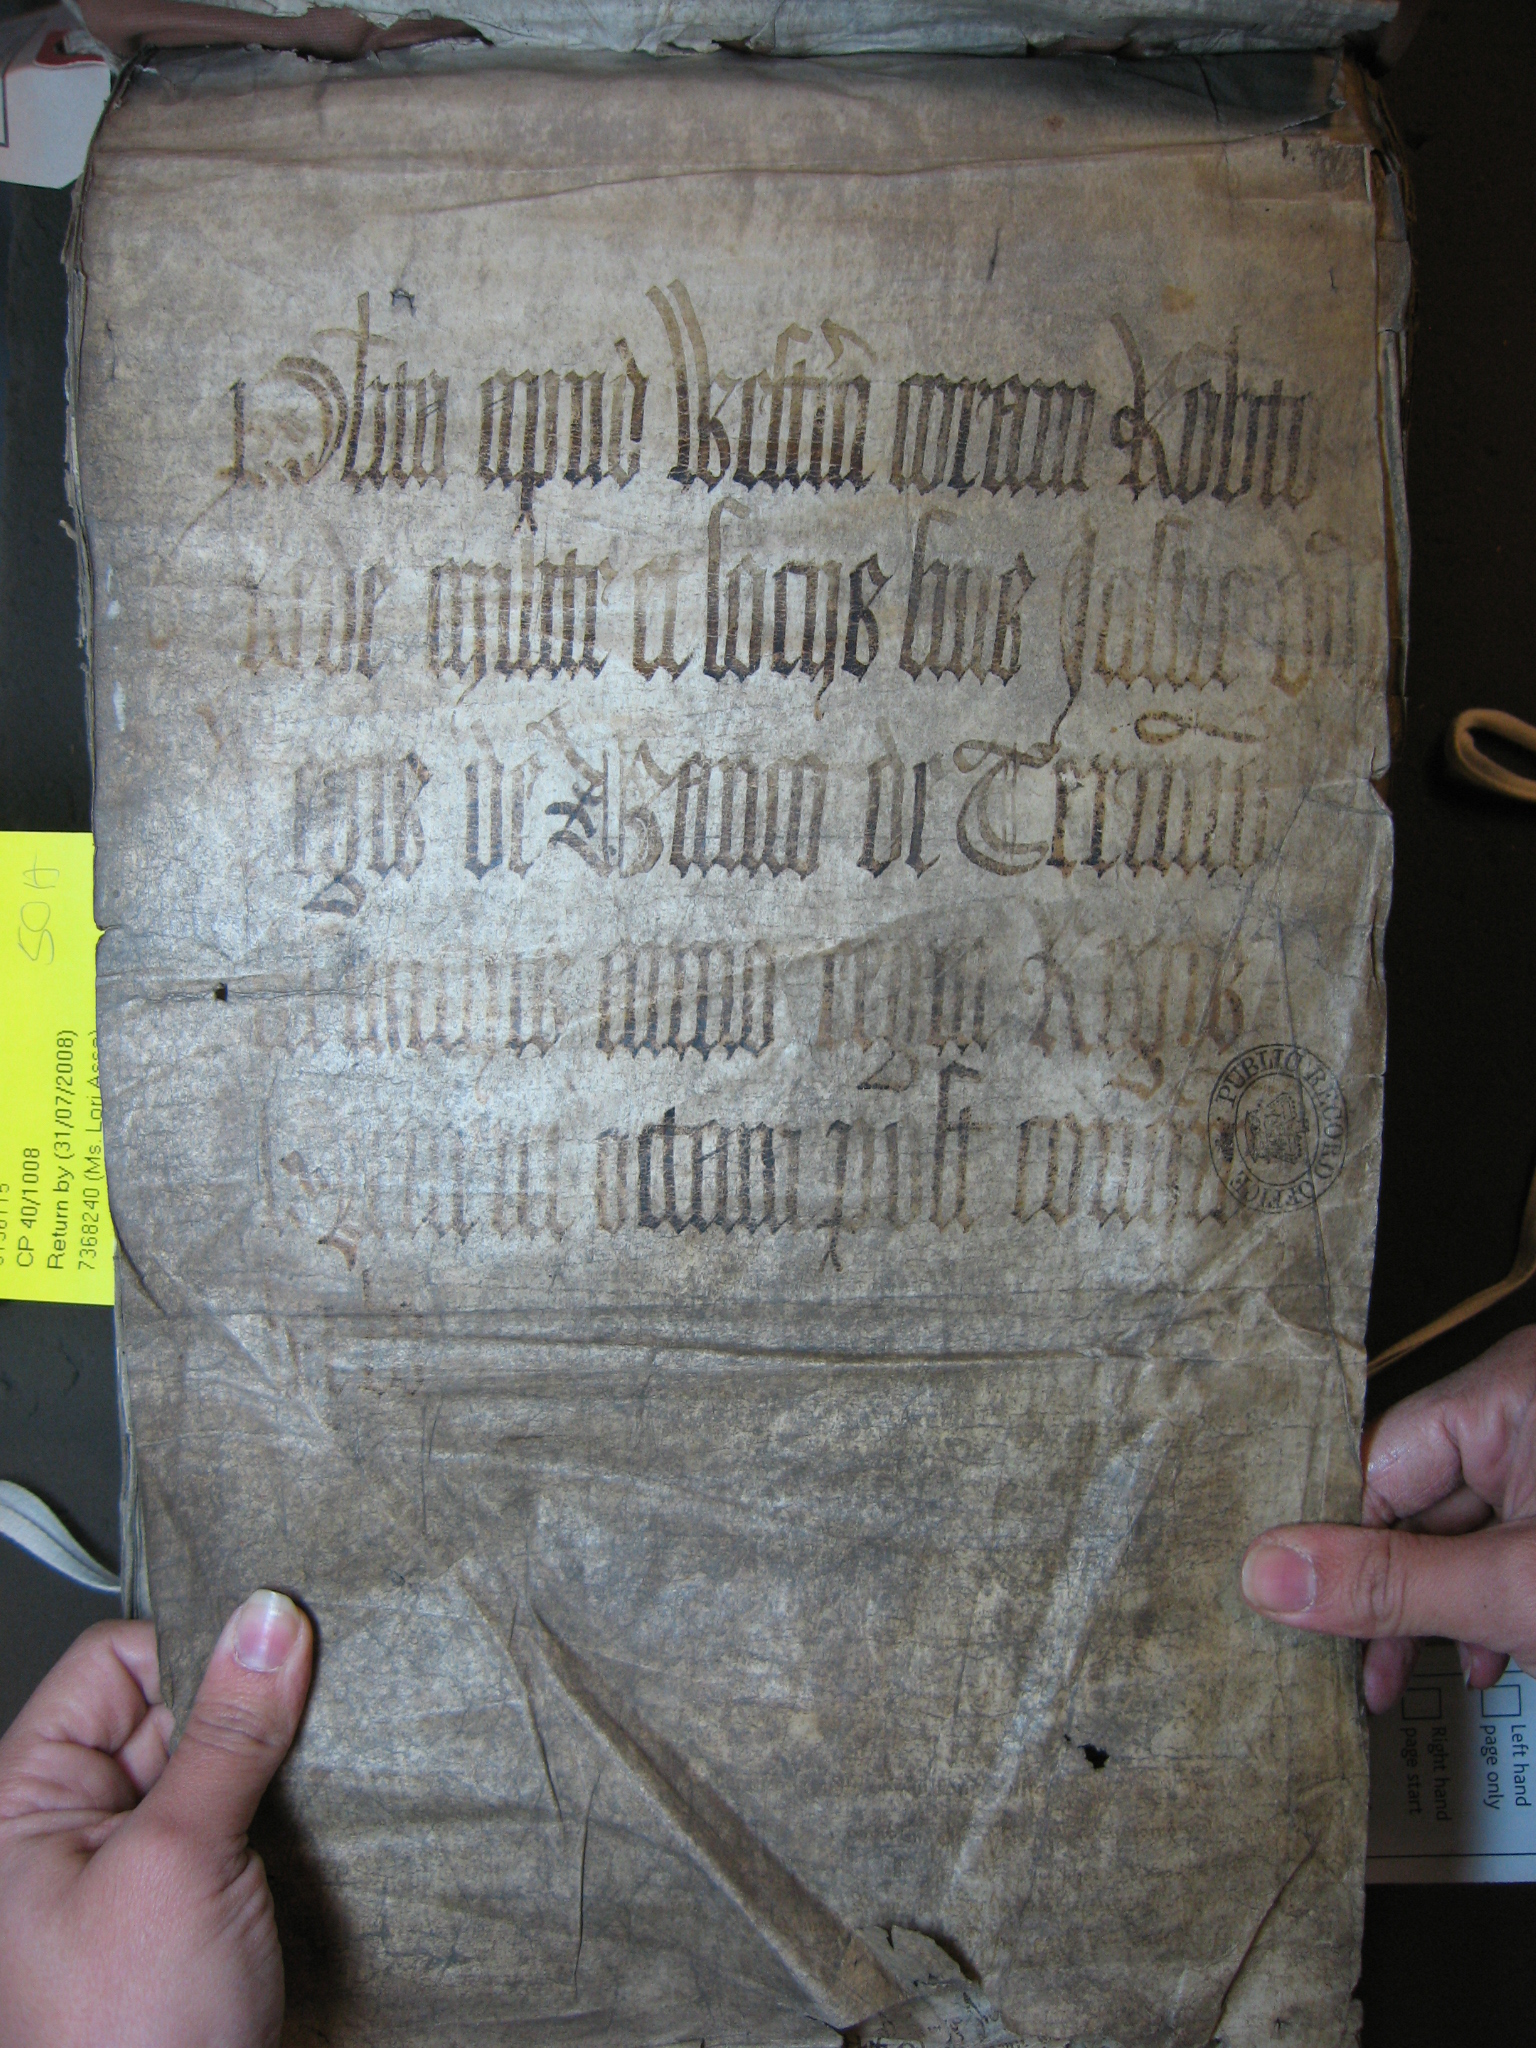 Placita apud Westm̄ coram Rob̄to
Rede milite et socijs suis Justic̄ dn̄i
Regis de Banco de Termino
anno regni Regis
octaui post conqm̄
PUBLIC RECORD OFFICE
50 H
CP 40/1008
Return by (31/07/2008)
7368240 (Ms. Lori
Left hand
page only
Right hand
page start